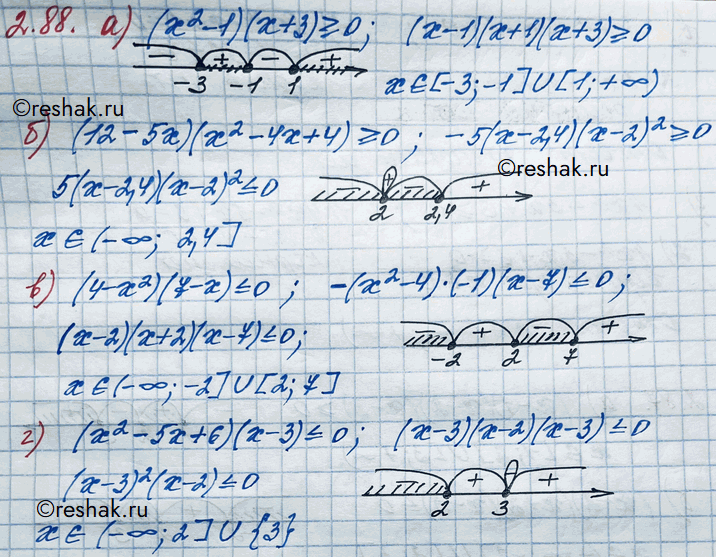 2.88. а) (x² - 1)(x+3) ≥ 0; (x-1)(x+1)(x+3) ≥ 0
− + − +
-3 -1 1
x ∈ [-3; -1] ∪ [1; +∞)
©reshak.ru
б) (12 - 5x)(x² - 4x + 4) ≥ 0; -5(x-2,4)(x-2)² ≥ 0
©reshak.ru
5(x-2,4)(x-2)² ≤ 0
− + − +
2 2,4
x ∈ (-∞; 2,4]
в) (4-x²)(7-x) ≤ 0; -(x²-4)·(-1)(x-7) ≤ 0;
(x-2)(x+2)(x-7) ≤ 0;
− + − +
-2 2 7
x ∈ (-∞; -2] ∪ [2; 7]
г) (x² - 5x + 6)(x-3) ≤ 0; (x-3)(x-2)(x-3) ≤ 0
(x-3)²(x-2) ≤ 0
+ − +
2 3
©reshak.ru
x ∈ (-∞; 2] ∪ {3}